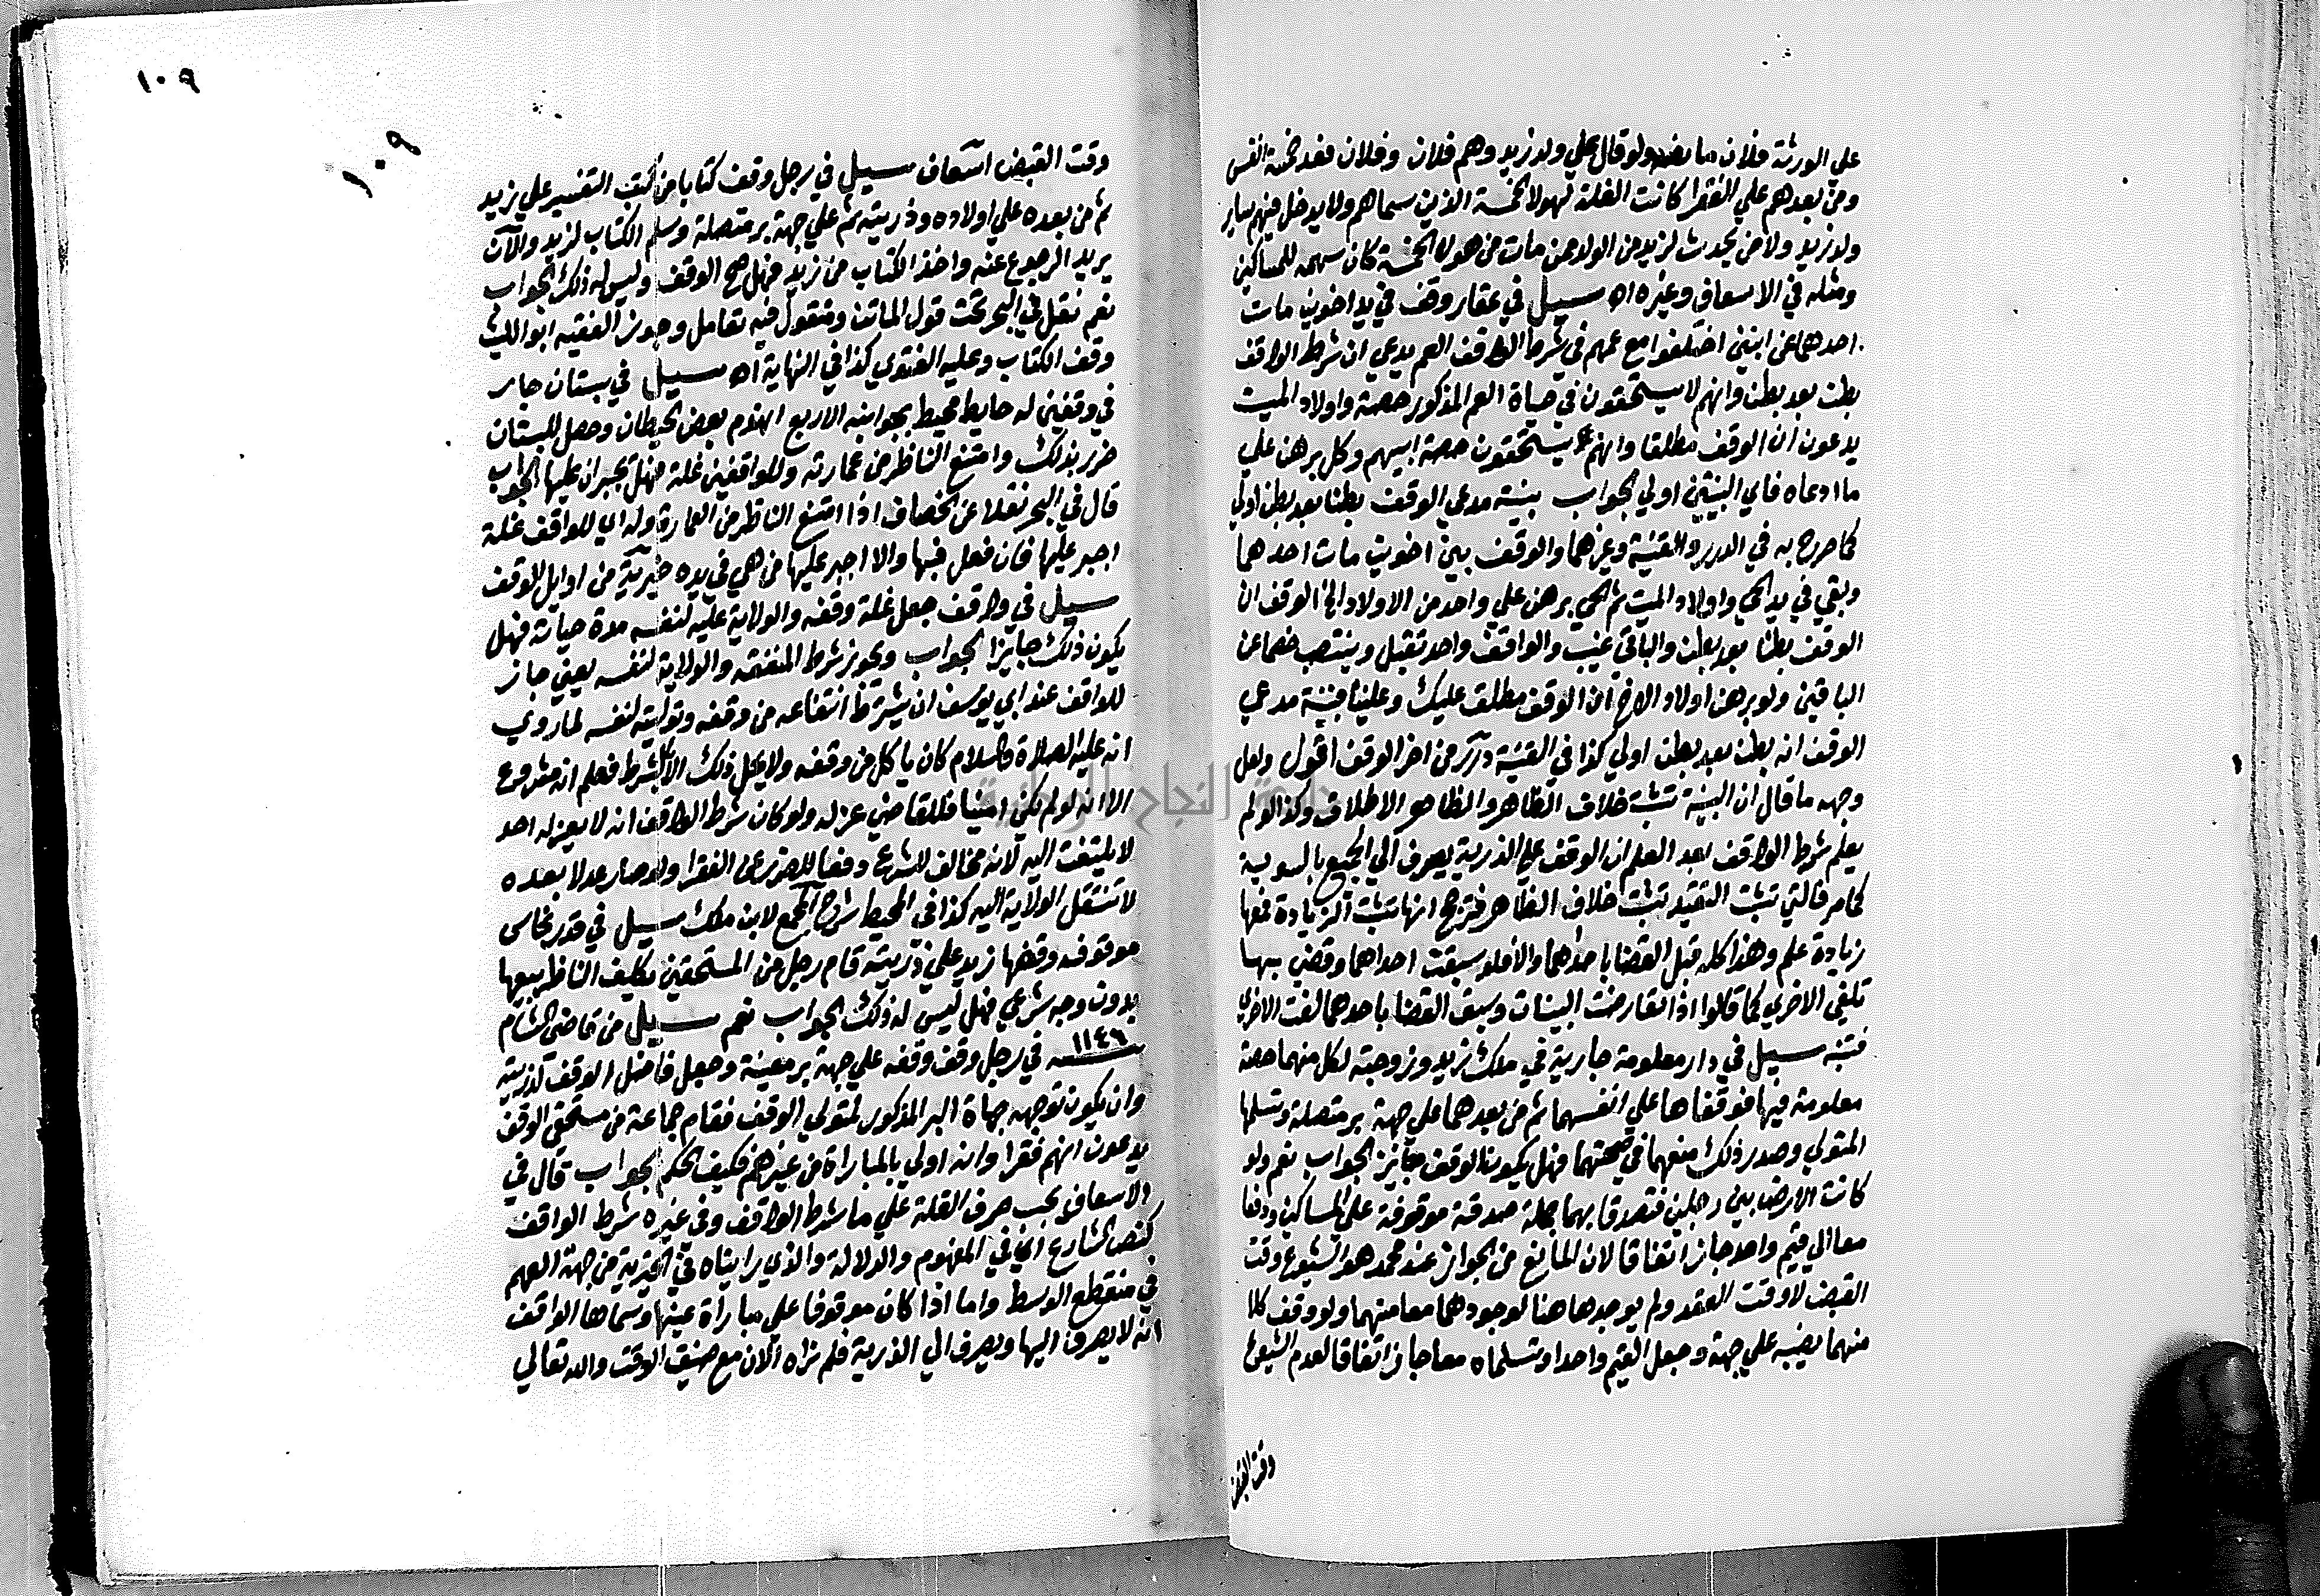 علي الورثة فلان ما بعده ولو قال علي ولد زيد وهم فلان وفلان فعد خمسة انفس
ومن بعدهم علي الفقرا كانت الغلة لهولا الخمسة الذين سماهم ولا يدخل فيهم ساير
ولد زيد ولا من يحدث لزيد من الولد من مات من هولا الخمسة كان سهمه للمساكين
ومثله في الاسعاف وغيره اه سيل في عقار وقف في يد اخوين مات
احدهما عن ابنين اختلفوا مع عمهم في شرط الواقف العم يدعي ان شرط الواقف
بطن بعد بطن وانهم لا يستحقون في حياة العم المذكور حصة واولاد الميت
يدعون ان الوقف مطلقا وانهم يستحقون حصة ابيهم وكل برهن علي
ما ادعاه فاي البينتين اولي الجواب بينة مدعي الوقف بطنا بعد بطن اولي
كما صرح به في الدرر والقنية وغيرهما والوقف بين اخوين مات احدهما
وبقي في يد الحي واولاد الميت ثم الحي برهن علي واحد من الاولاد اخ الوقف ان
الوقف بطنا بعد بطن والباقي غيب والواقف واحد تقبل وينتصب خصما عن
الباقين ولو برهن اولاد الاخ ان الوقف مطلق عليك وعلينا فبينة مدعي
الوقف انه بطن بعد بطن اولي كذا في القنية درر من اخر الوقف اقول ولعل
وجهه ما قال ان البينة تثبت خلاف الظاهر والظاهر الاطلاق وكذا لو لم
يعلم شرط الواقف بعد العلم ان الوقف علي الذرية يصرف الي الجميع بالسوية
كما مر فالتي تثبت التقييد تثبت خلاف الظاهر فترجح انها تثبت الزيادة فمعها
زيادة علم وهذا كله قبل القضا باحداهما والا فلو سبقت احداهما وقضي بها
تلغي الاخري كما قالوا اذا تعارضت البينات وسبق القضا باحدهما لغت الاخري
فتنبه سيل في دار معلومة جارية في ملك زيد وزوجته لكل منهما حصة
معلومة فيها فوقفاها علي انفسهما ثم من بعدهما علي جهة بر متصلة وتسلمها
المتولي وصدر ذلك منهما في صحتهما فهل يكون الوقف جايز الجواب نعم ولو
كانت الارض بين رجلين فتصدقا بهما جملة صدقة موقوفة علي المساكين ودفعا
معا الي قيم واحد جاز اتفاقا لان المانع من الجواز عند محمد هو الشيوع وقت
القبض لا وقت العقد ولم يوجدها هنا لوجودهما معا منهما ولو وقف كلا
منهما نصيبه علي جهة وجعل القيم واحدا وتسلماه معا جاز اتفاقا لعدم الشيوع
وقت القبض
١٠٩
١٠٩
وقت القبض اسعاف سيل في رجل وقف كتابا من كتب التفسير علي زيد
ثم من بعده علي اولاده وذريته ثم علي جهة بر متصلة وسلم الكتاب لزيد والآن
يريد الرجوع عنه واخذ الكتاب من زيد فهل صح الوقف وليس له ذلك الجواب
نعم نقل في البحر تحت قول الماتن ومنقول فيه تعامل وجوز الفقيه ابو الليث
وقف الكتاب وعليه الفتوي كذا في النهاية اه سيل في بستان جار
في وقفين له حايط محيط بجوانبه الاربع انهدم بعض الحيطان وحصل للبستان
ضرر بذلك وامتنع الناظر من عمارته وللواقفين غلة فهل يجبران عليها الجواب
قال في البحر نقلا عن الخصاف اذا امتنع الناظر من العمارة وله اي للواقف غلة
اجبر عليها فان فعل فبها والا اجبر عليها من هي في يده خيرية من اوايل الوقف
سيل في واقف جعل غلة وقفه والولاية عليه لنفسه مدة حياته فهل
يكون ذلك جايزا الجواب ويجوز شرط المنفعة والولاية لنفسه يعني جاز
للواقف عند ابي يوسف ان يشترط انتفاعه من وقفه وتوليته لنفسه لما روي
انه عليه الصلاة والسلام كان ياكل من وقفه ولا يحل ذلك الا بالشرط فعلم انه مشروع
الا انه لو لم يكن امينا فللقاضي عزله ولو كان شرط الواقف انه لا يعزله احد
لا يلتفت اليه لانه مخالف للشرع دفعا للضرر عن الفقرا ولو صار عدلا بعده
لا تنتقل الولاية اليه كذا في المحيط شرح المجمع لابن ملك سيل في قدر نحاس
موقوفة وقفها زيد علي ذريته قام رجل من المستحقين يكلف الناظر ببيعها
بدون وجه شرعي فهل ليس له ذلك الجواب نعم سيل من قاضي الشام
سنة ١١٤٦ في رجل وقف وقفه علي جهة بر معينة وجعل فاضل الوقف لذريته
وان يكون توجيه جهاة البر المذكور لمتولي الوقف فقام جماعة من مستحقي الوقف
يدعون انهم فقرا وانه اولي بالمباراة من غيرهم فكيف الحكم الجواب قال في
الاسعاف يجب صرف الغلة علي ما شرط الواقف وفي غيره شرط الواقف
كنص الشارع اي في المفهوم والدلالة والذي رايناه في الخيرية من جهة العم
في منقطع الوسط واما اذا كان موقوفا علي مباراة عينها وسماها الواقف
انه لا يصرف اليها ويصرف الي الذرية فلم نراه الان مع ضيق الوقت والله تعالي
جامعة النجاح الوطنية